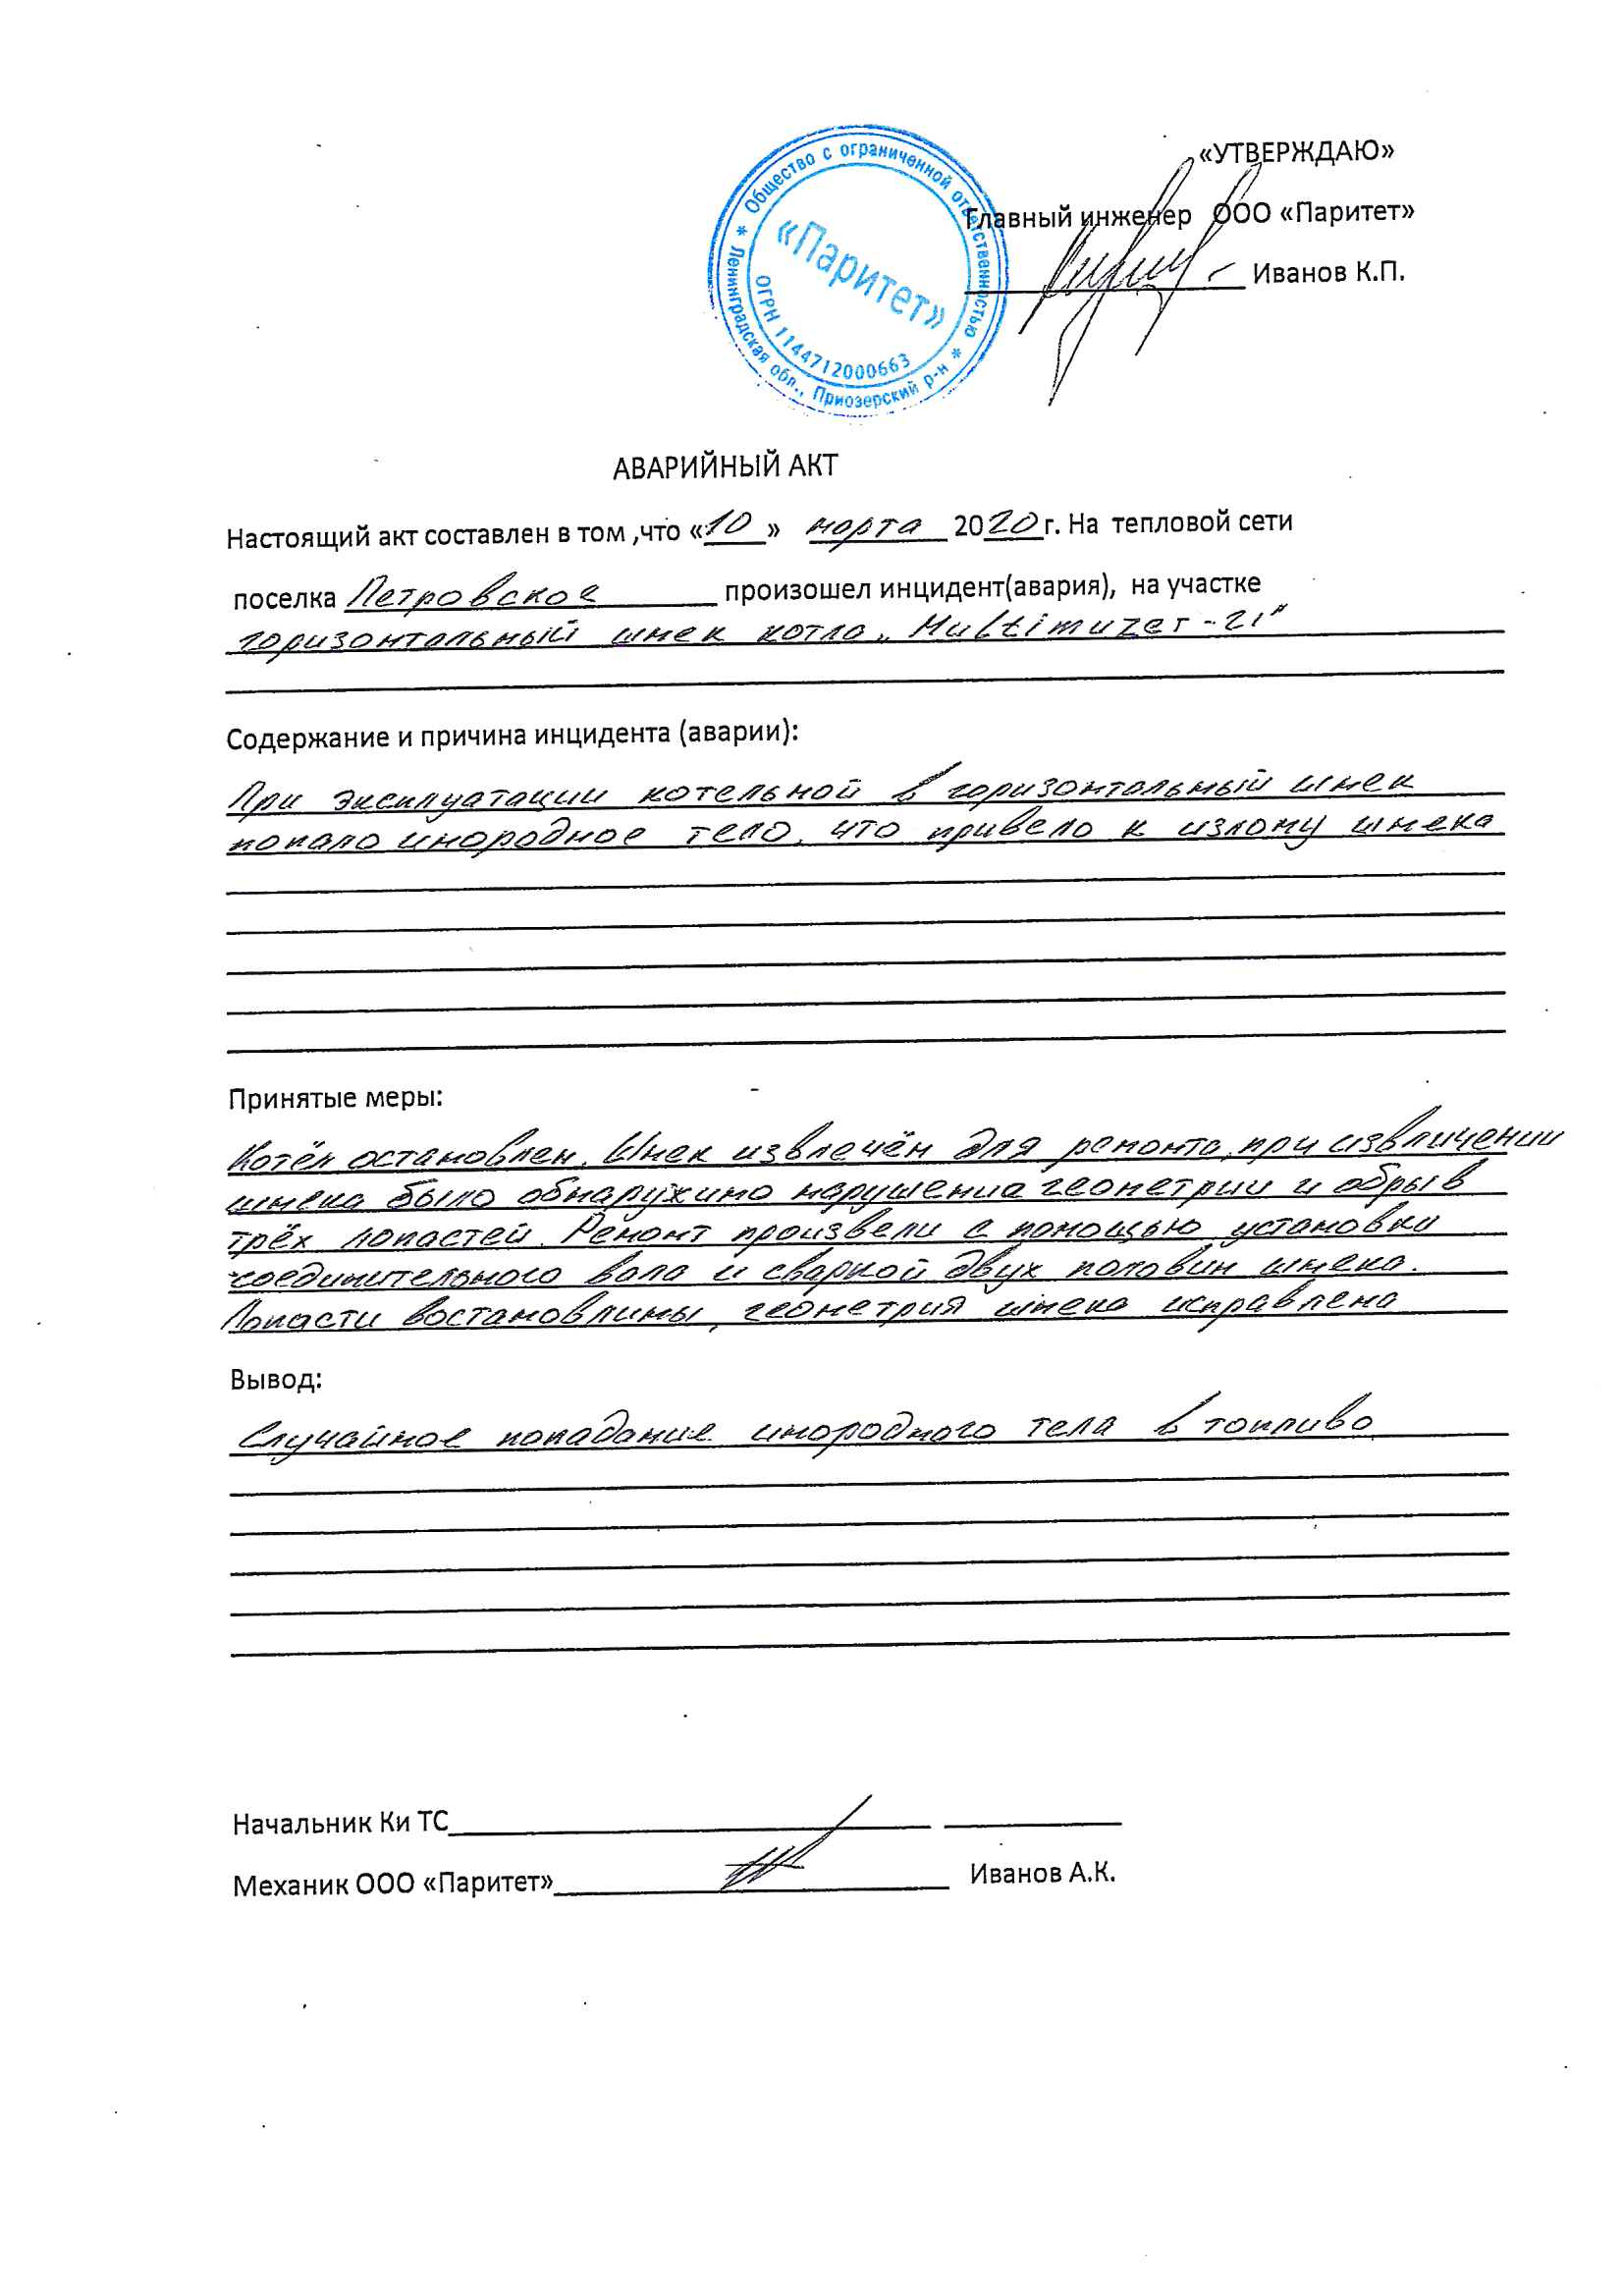 «УТВЕРЖДАЮ»
Главный инженер ООО «Паритет»
Иванов К.П.
* Общество с ограниченной ответственностью *
Ленинградская обл., Приозерский р-н
«Паритет»
ОГРН 1144712000663
АВАРИЙНЫЙ АКТ
Настоящий акт составлен в том ,что «10» марта 2020г. На тепловой сети
поселка Петровское произошел инцидент(авария), на участке
горизонтальный шнек котла „Multimuzer-21"
Содержание и причина инцидента (аварии):
При эксплуатации котельной в горизонтальный шнек
попало инородное тело, что привело к излому шнека
Принятые меры:
Котёл остановлен. Шнек извлечён для ремонта, при извличении
шнека было обнаружино нарушениа геометрии и обрыв
трёх лопастей. Ремонт произвели с помощью установки
соединительного вала и сваркой двух половин шнека.
Лопасти востановлины, геометрия шнека исправлена
Вывод:
Случайное попадание инородного тела в топливо
Начальник Ки ТС
Механик ООО «Паритет» Иванов А.К.